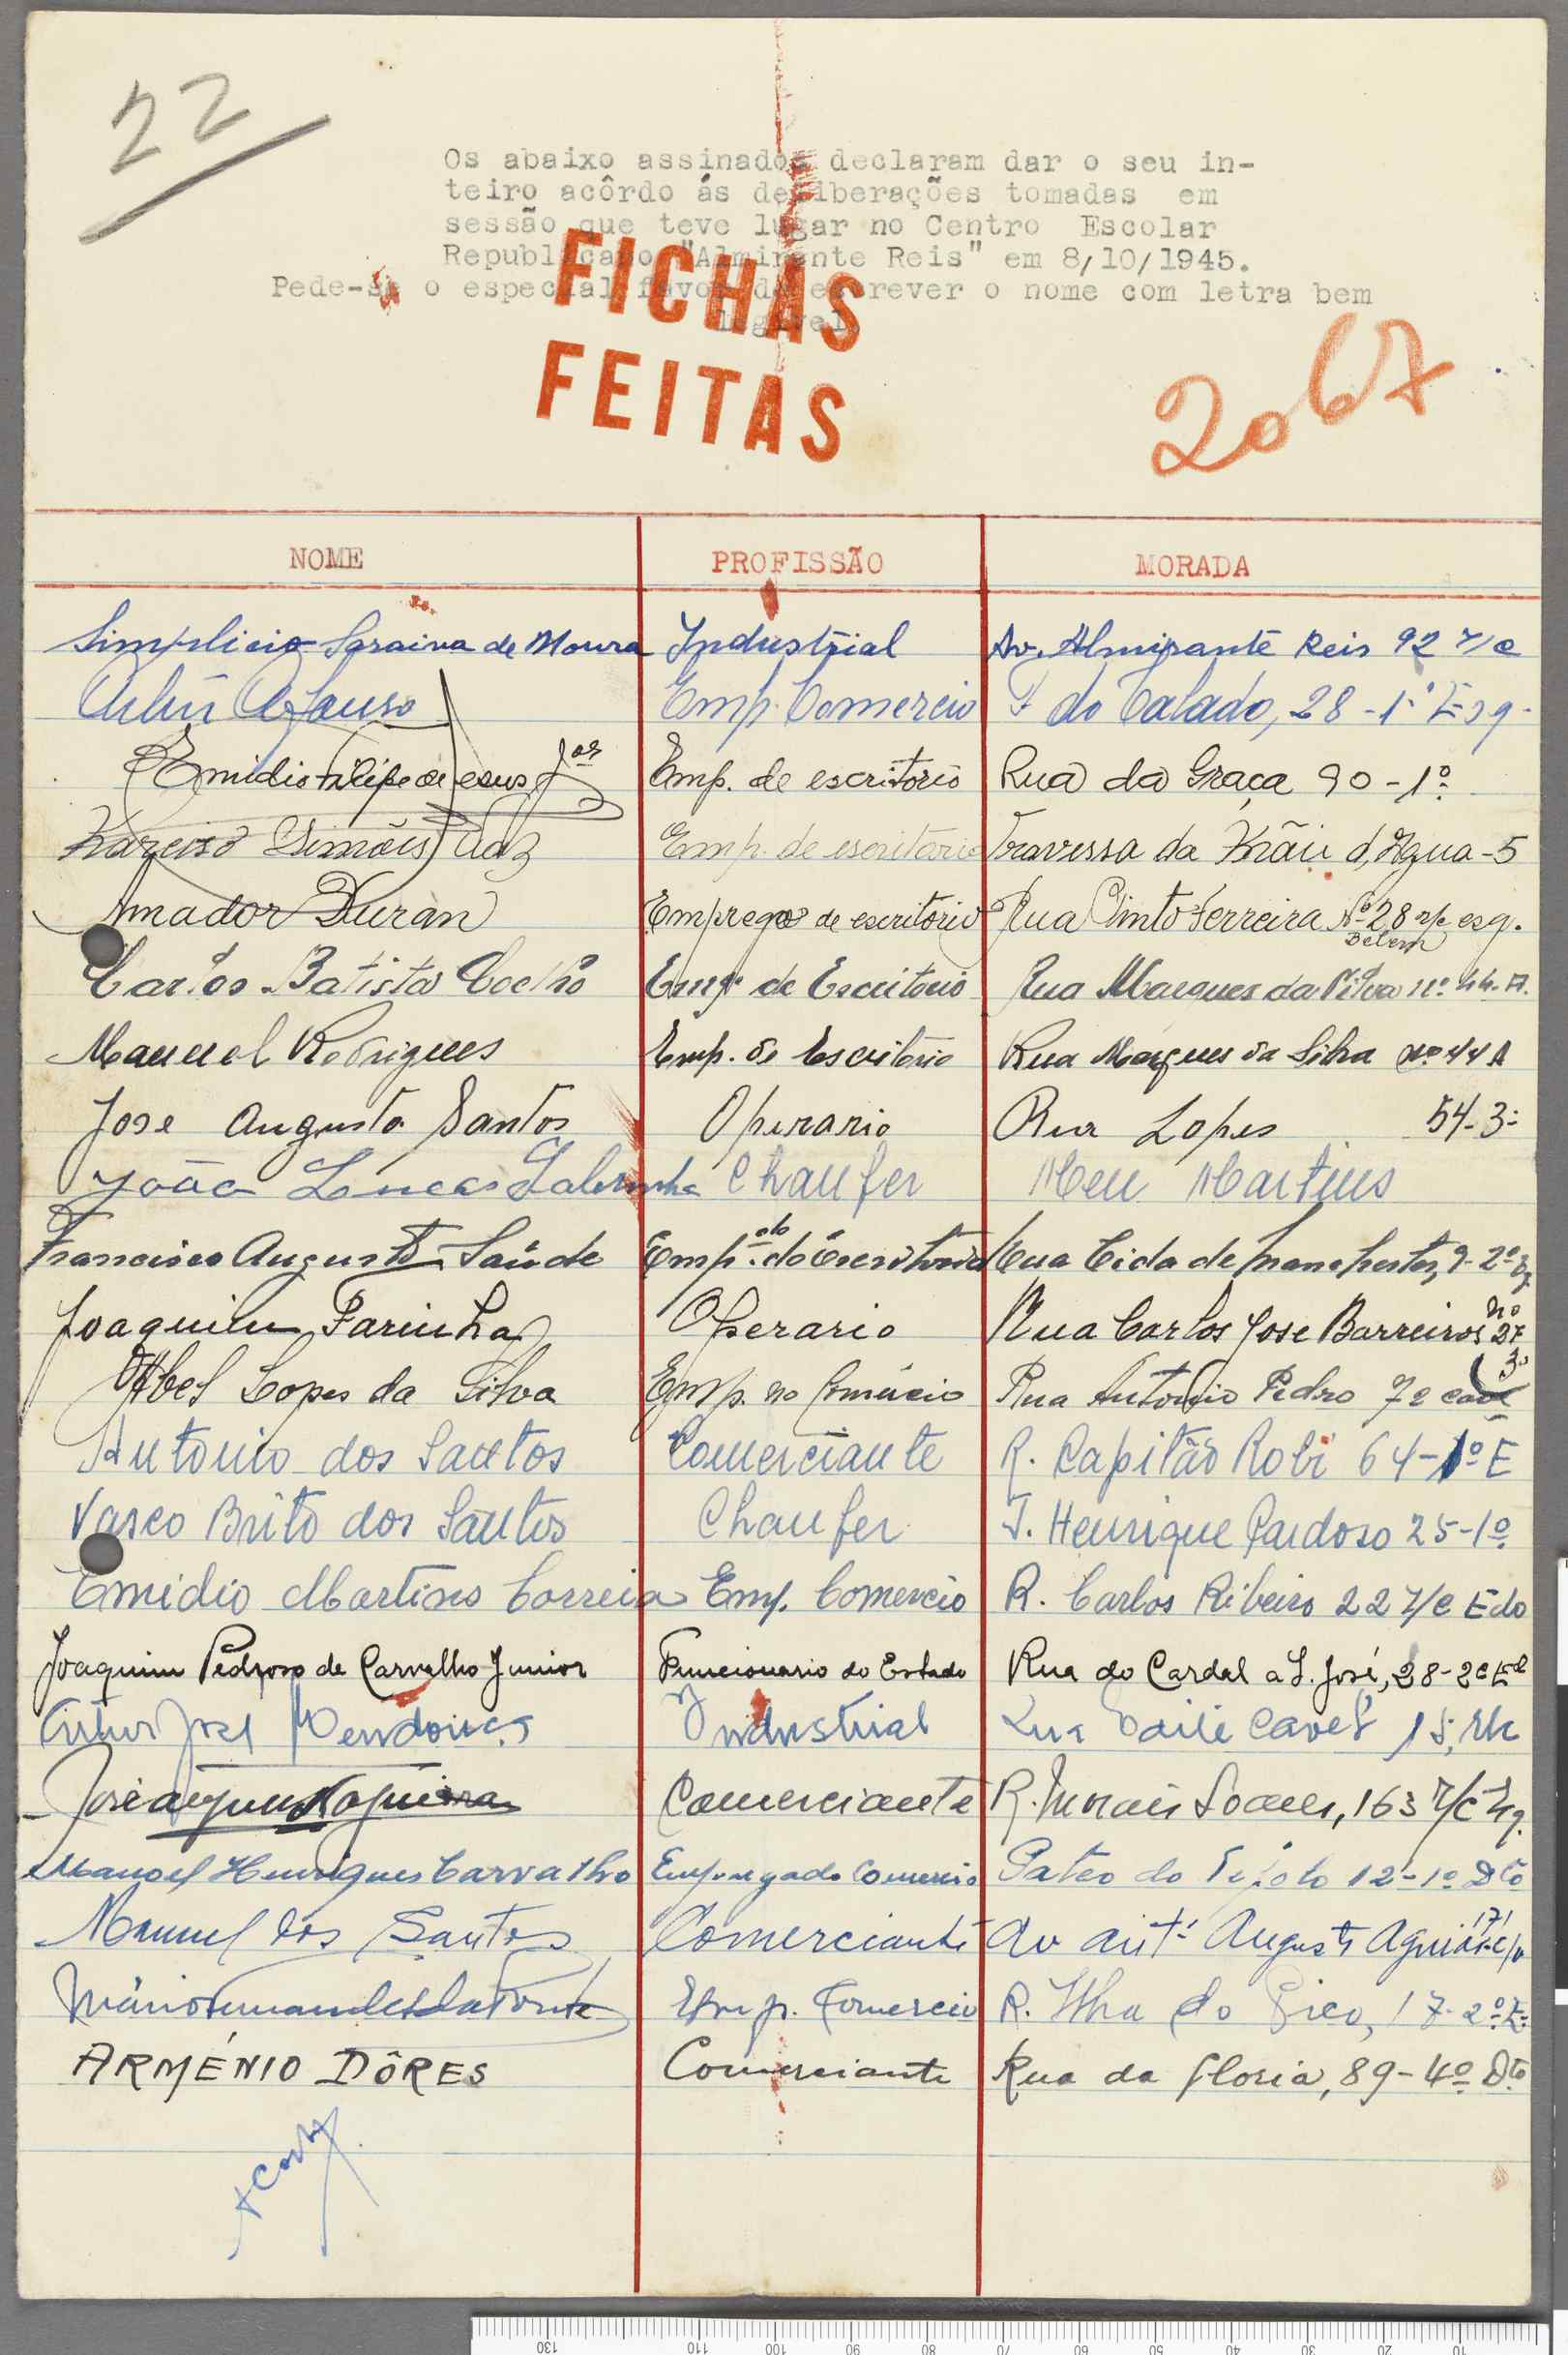 22
Os abaixo assinados declaram dar o seu in-
teiro acôrdo ás deliberações tomadas em
sessão que teve lugar no Centro Escolar
Republicano "Almirante Reis" em 8/10/1945.
Pede-se o especial favor de escrever o nome com letra bem
legivel
FICHAS
FEITAS
2067
NOME PROFISSÃO MORADA
Simplicio Saraiva de Moura Industrial Av. Almirante Reis 92 r/c
Afonso Emp. Comercio do Calado, 28-1º Esq.
Emidio Filipe de Jesus Jor Emp. de escritorio Rua da Graça 90-1º
Narciso Simões Vaz Emp. de escritorio Travessa da Mãi d'Agua-5
Amador Duran Empregº de escritório Rua Pinto Ferreira Nº 28 r/c esq. Belem
Carlos Batista Coelho Empº de Escritorio Rua Marques da Silva nº 44-A.
Manuel Rodrigues Emp. de Escritorio Rua Marques da Silva nº 44 A
Jose Augusto Santos Operario Rua Lopes 54-3º
João Lucas Chaufer Martins
Francisco Augusto Saúde Empdo. do Escritorio Rua Cidade Manchester, 9-2º
Joaquim Farinha Operario Rua Carlos Jose Barreiros nº 27
3º
Abel Lopes da Silva Emp. no Comércio Rua Antonio Pedro 72
Antonio dos Santos Comerciante R. Capitão Robi 64-1º E
Vasco Brito dos Santos Chaufer T. Henrique Cardoso 25-1º
Emidio Martins Correia Emp. Comercio R. Carlos Ribeiro 22 r/c Edo
Joaquim Pedroso de Carvalho Junior Funcionario do Estado Rua do Cardal a S. José, 28-2º Ed
Artur José Mendonça Industrial Rua 15, r/c
José Nogueira Comerciante R. Morais Soares, 163 r/c
Manoel Henriques Carvalho Empregado Comercio Pateo do Tijolo 12-1º Dto
Manuel dos Santos Comerciante Av antº Augusto Aguiar 171
Mário Fernandes da Fonte Emp. Comercio R. Ilha do Pico, 17-2º E.
ARMÉNIO DÔRES Comerciante Rua da Gloria, 89-4º Dto
130 110 100 90 80 70 60 50 40 30 20 10